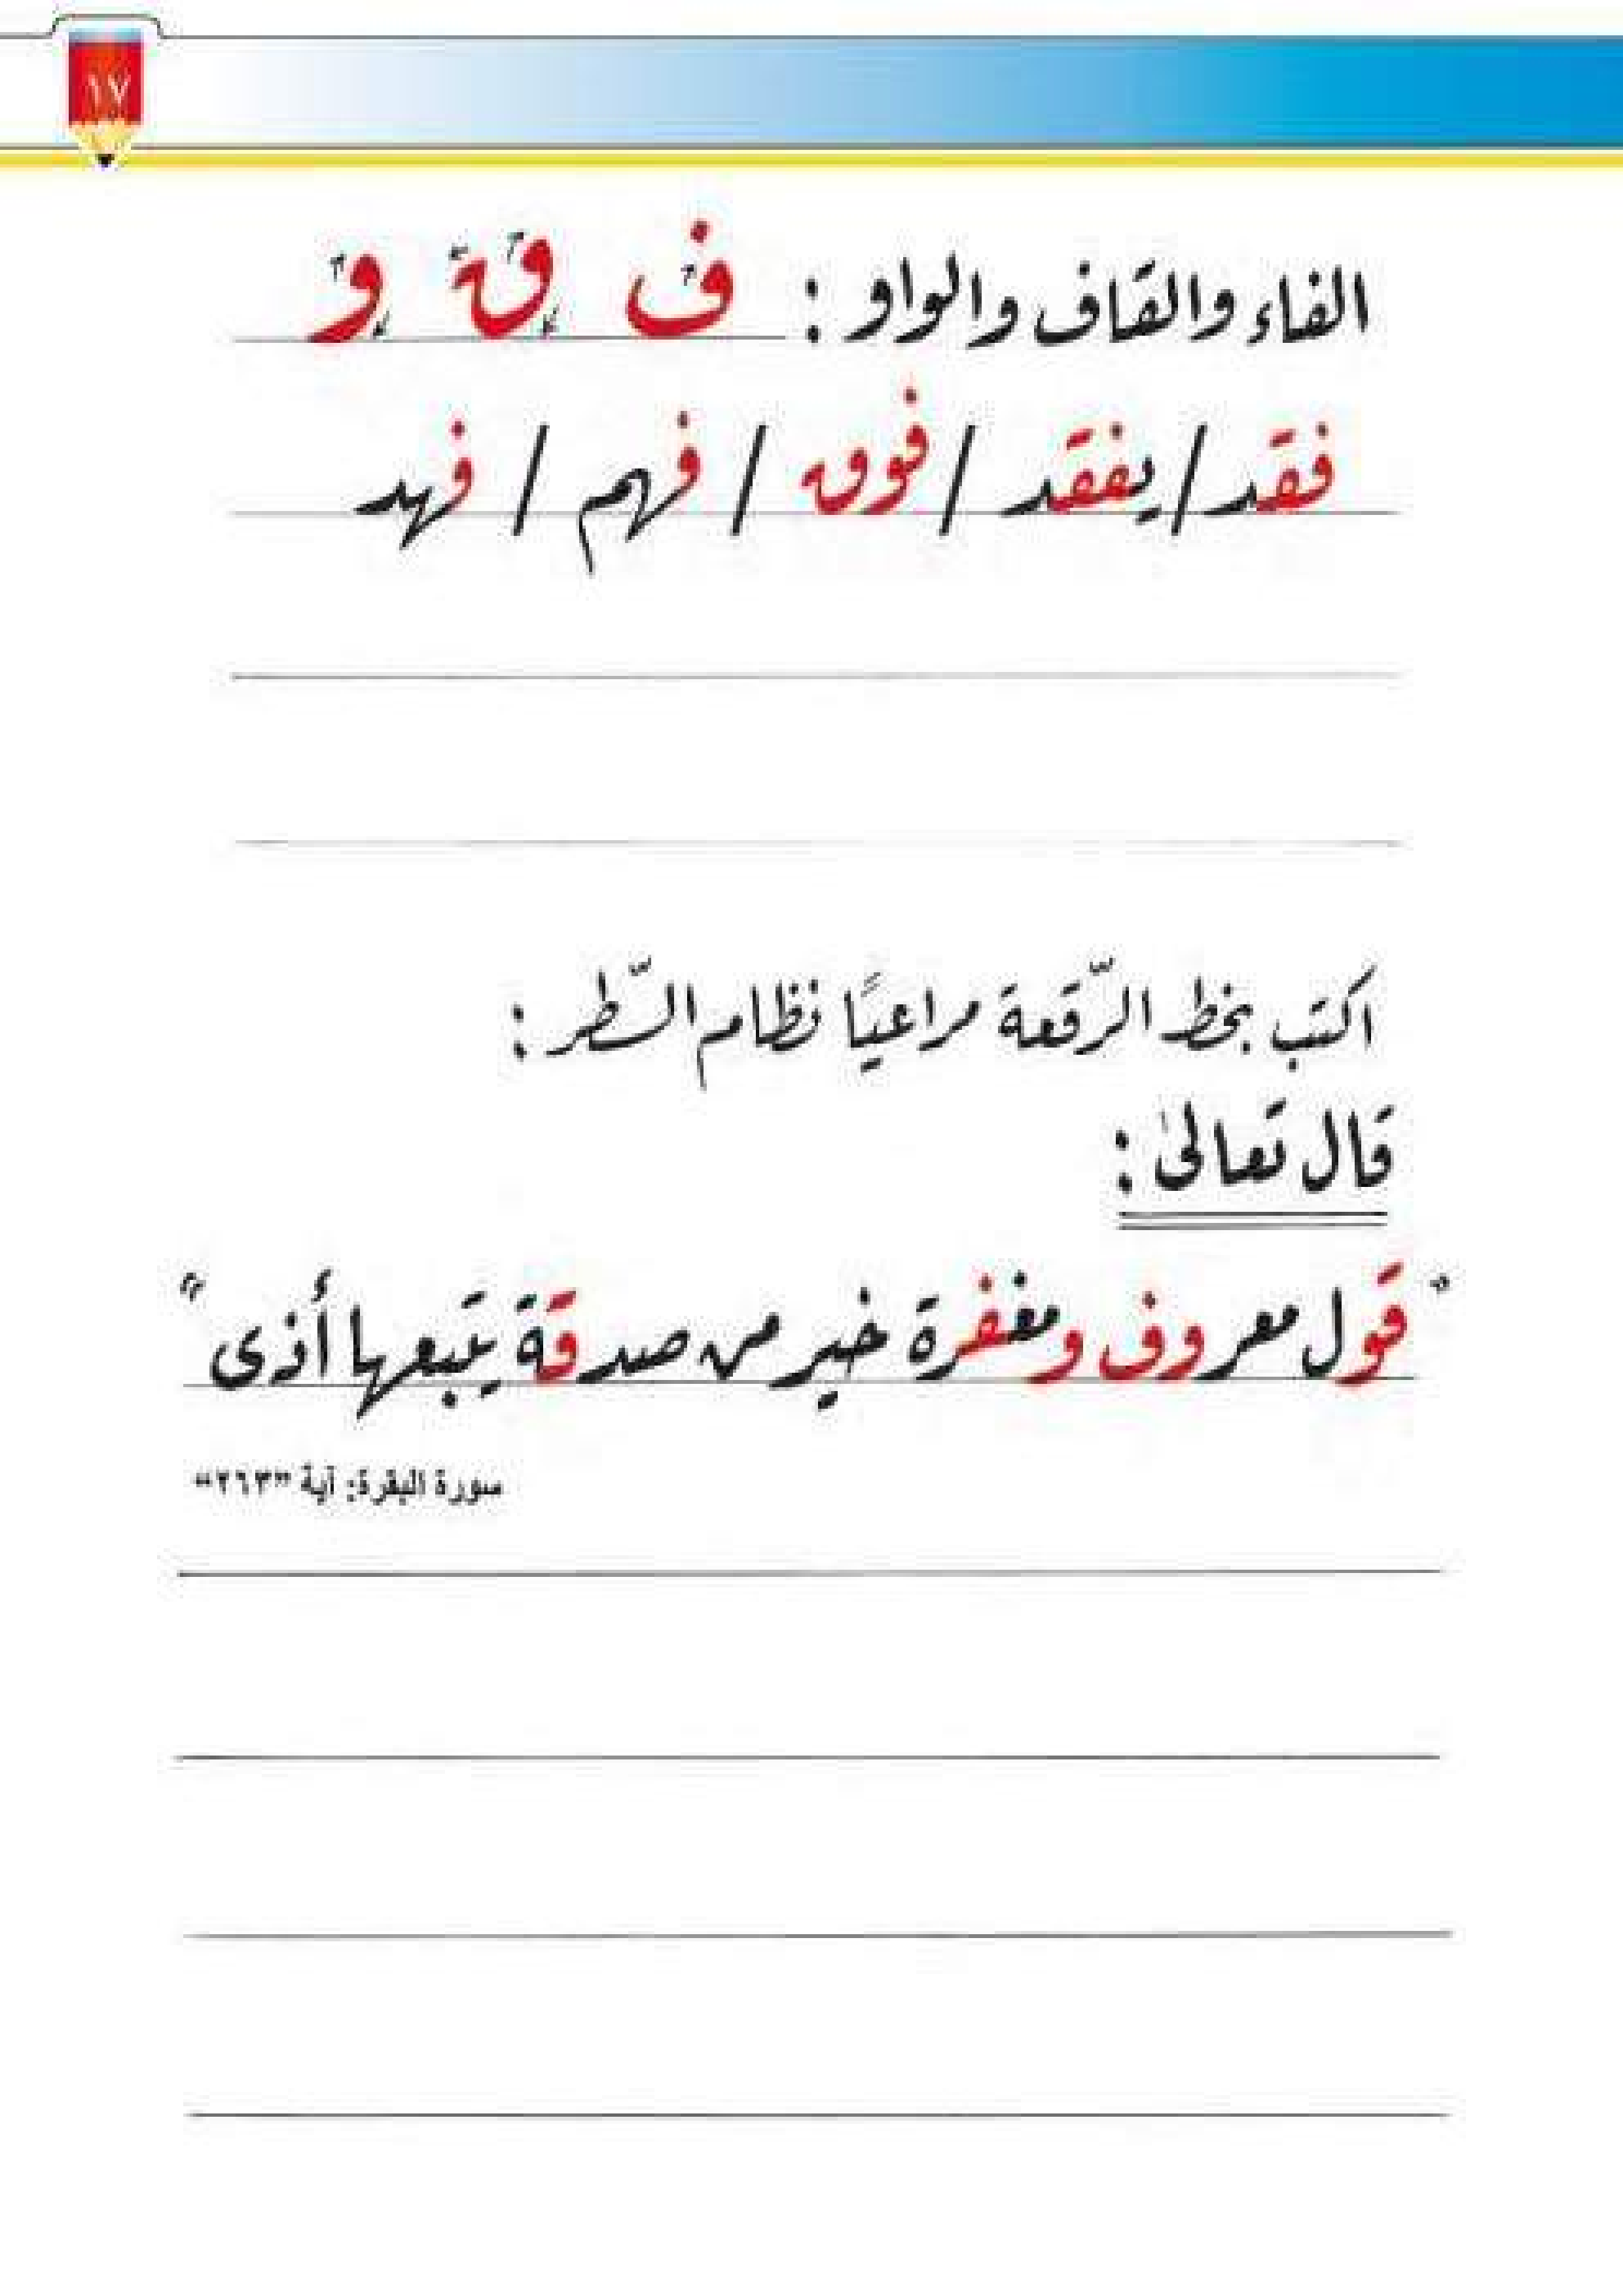 ١٧
الفاء والقاف والواو : ف ق و
فقد / يفقد / فوق / فهم / فهد
اكتب بخط الرّقعة مراعيًا نظام السّطر :
قال تعالىٰ :
"قول معروف ومغفرة خير من صدقة يتبعها أذى"
سورة البقرة: آية "٢٦٣"